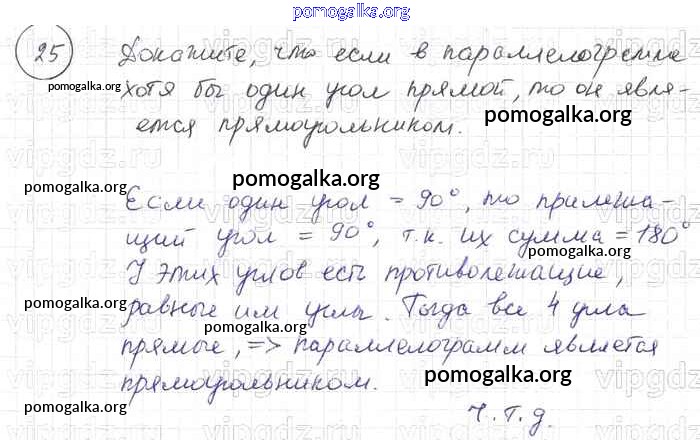 pomogalka.org
25 Докажите, что если в параллелограмме
pomogalka.org
хотя бы один угол прямой, то он явля-
ется прямоугольником.
pomogalka.org
pomogalka.org
pomogalka.org
Если один угол = 90°, то прилежа-
щий угол = 90°, т.к. их сумма = 180°
pomogalka.org
У этих углов есть противолежащие,
pomogalka.org
равные им углы. Тогда все 4 угла
pomogalka.org
прямые, => параллелограмм является
pomogalka.org
прямоугольником.
pomogalka.org
ч.т.д.